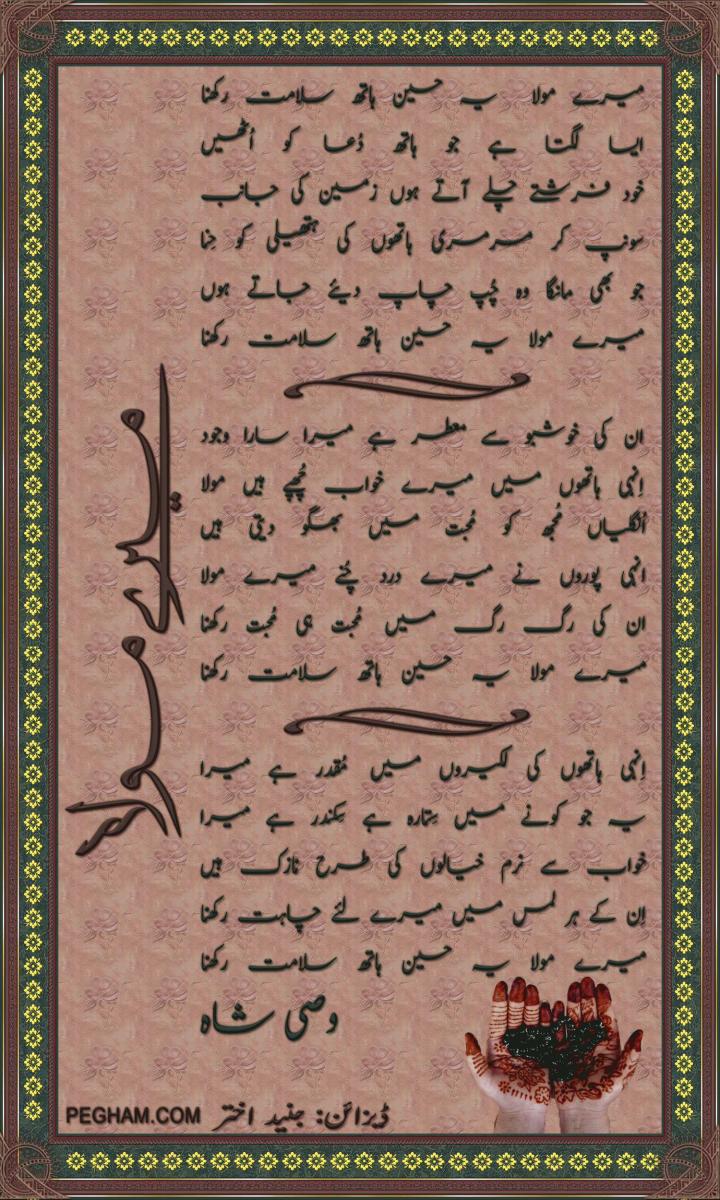 میرے مولا یہ حسین ہاتھ سلامت رکھنا
ایسا لگتا ہے جو ہاتھ دُعا کو اُٹھیں
خود فرشتے چلے آتے ہوں زمین کی جانب
سونپ کر مرمری ہاتھوں کی ہتھیلی کو حِنا
جو بھی مانگا وہ چُپ چاپ دیئے جاتے ہوں
میرے مولا یہ حسین ہاتھ سلامت رکھنا
ان کی خوشبو سے معطر ہے میرا سارا وجود
اِنہی ہاتھوں میں میرے خواب چُھپے ہیں مولا
اُنگلیاں مُجھ کو مُحبت میں بھگو دیتی ہیں
انہی پوروں نے میرے درد چُنے میرے مولا
ان کی رگ رگ میں مُحبت ہی مُحبت رکھنا
میرے مولا یہ حسین ہاتھ سلامت رکھنا
اِنہی ہاتھوں کی لکیروں میں مُقدر ہے میرا
یہ جو کونے میں سِتارہ ہے سِکندر ہے میرا
خواب سے نرم خیالوں کی طرح نازک ہیں
اِن کے ہر لمس میں میرے لئے چاہت رکھنا
میرے مولا یہ حسین ہاتھ سلامت رکھنا
وصی شاہ
میرے مولا
ڈیزائن: جنید اختر PEGHAM.COM